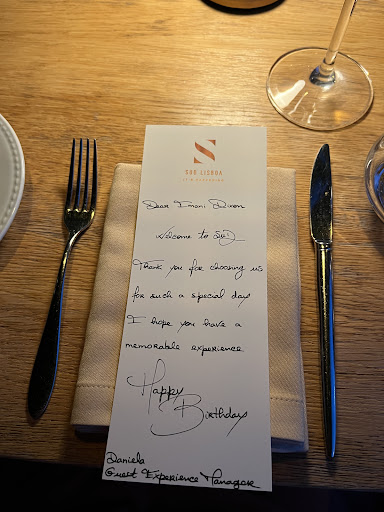 SUD LISBOA
Dear Imani Dixon
Welcome to SUD
Thank you for choosing us
for such a special day
I hope you have a
memorable experience
Happy
Birthday
Daniela
Guest Experience Manager